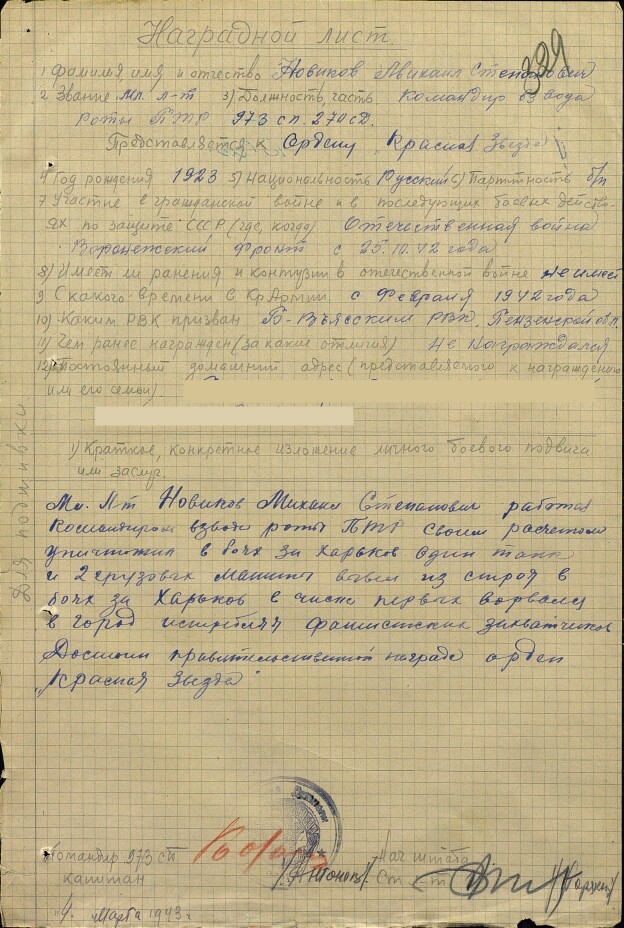 Наградной лист.
329
1 Фамилия, имя и отчество Новиков Михаил Степанович
2 Звание Мл. л-т 3) Должность, часть Командир взвода
роты ПТР 973 сп. 270 сд.
Представляется к Ордену Красная Звезда
4) Год рождения 1923 5) Национальность Русский 6) Партийность б/п
7 Участие в гражданской войне и в последующих боевых действи-
ях по защите СССР (где, когда) Отечественная война
Воронежский фронт с 25.10.42 года
8) Имеет ли ранения и контузии в отечественной войне не имеет
9 С какого времени в Кр Армии с февраля 1942 года
10) Каким РВК призван Б-Вьясским РВК, Пензенской обл.
11) Чем ранее награжден (за какие отличия) Не награждался
12) Постоянный домашний адрес (представляемого к награждению
или его семьи).
1) Краткое, конкретное изложение личного боевого подвига
или заслуг.
Мл. Л-т Новиков Михаил Степанович работая
командиром взвода роты ПТР своим расчетом
уничтожил в боях за Харьков один танк
и 2 грузовых машины вывел из строя в
боях за Харьков в числе первых ворвался
в город истребляя фашистских захватчиков
Достоин правительственной награде орден
"Красная Звезда"
Для подшивки
Командир 973 сп Нач штаба
капитан /Антонов/ Ст л-т
4. марта 1943 г.